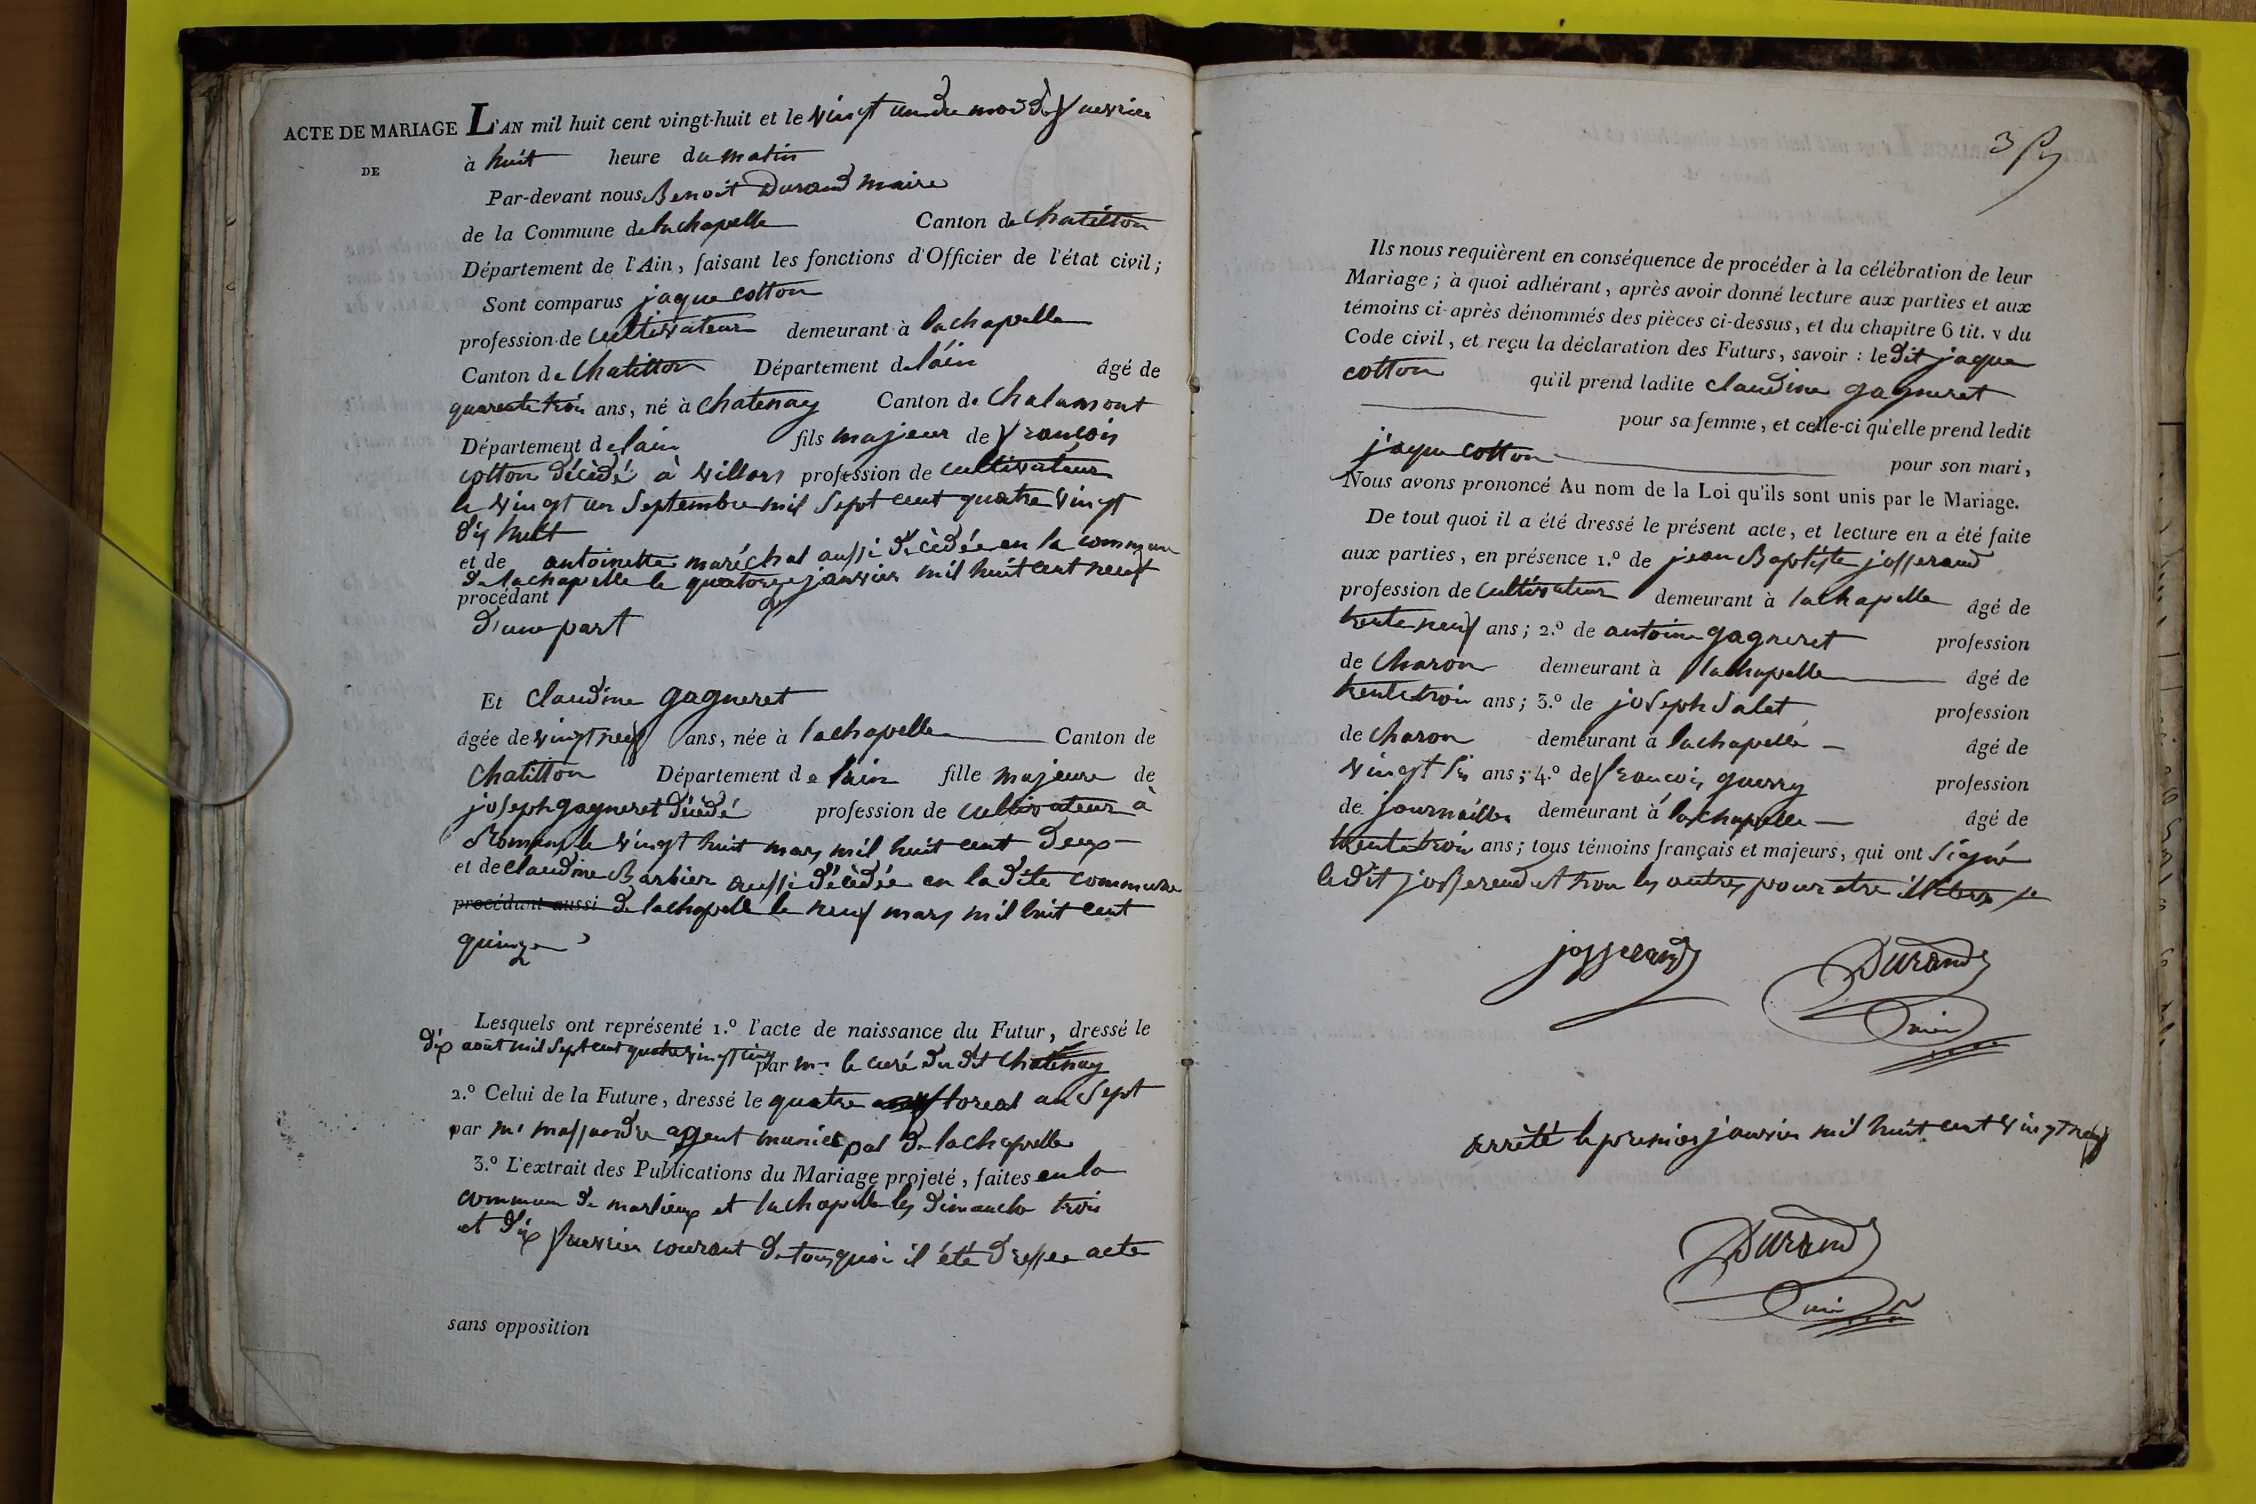 ACTE DE MARIAGE L'AN mil huit cent vingt-huit et le vingt un du mois de fuevrier
DE
à huit heure du matin
Par-devant nous Benoit Durand maire
de la Commune de lachapelle Canton de Chatillon
Département de l'Ain, faisant les fonctions d'Officier de l'état civil;
Sont comparus jaque cotton
profession de cultivateur demeurant à lachapelle
Canton de Chatillon Département de l'ain âgé de
quarente trois ans, né à chatenay Canton de Chalamont
Département de lain fils majeur de francois
cotton décèdé à villars profession de cultivateur
le vingt un Septembre mil Sept cent quatre vingt
dix huit
et de antoinette maréchal aussi décèdée en la commune
de lachapelle le quatorze janvier mil huit cent neuf
procédant
d'une part
Et claudine gagneret
âgée de vingt neuf ans, née à lachapelle Canton de
Chatillon Département de lain fille majeure de
joseph gagneret décèdé profession de cultivateur à
Romans le vingt huit mars mil huit cent deux
et de claudine Barbier aussi décèdée en la dite commune
procédant aussi de lachapelle le neuf mars mil huit cent
quinze
Lesquels ont représenté 1.º l'acte de naissance du Futur, dressé le
dix août mil Sept cent quatre vingt cinq par mr le curé du dit Chatenay
2.º Celui de la Future, dressé le quatre floreal an Sept
par mr massandre agent municipal de lachapelle
3.º L'extrait des Publications du Mariage projeté, faites en la
commune de marlieux et lachapelle les dimanche trois
et dix fuevrier courant de tous quoi il été dressee acte
sans opposition
3
Ils nous requièrent en conséquence de procéder à la célébration de leur
Mariage; à quoi adhérant, après avoir donné lecture aux parties et aux
témoins ci-après dénommés des pièces ci-dessus, et du chapitre 6 tit. v du
Code civil, et reçu la déclaration des Futurs, savoir : le dit jaque
cotton qu'il prend ladite claudine gagneret
pour sa femme, et celle-ci qu'elle prend ledit
jaque cotton pour son mari,
Nous avons prononcé Au nom de la Loi qu'ils sont unis par le Mariage.
De tout quoi il a été dressé le présent acte, et lecture en a été faite
aux parties, en présence 1.º de jean Baptiste josserand
profession de cultivateur demeurant à lachapelle âgé de
trente neuf ans; 2.º de antoine gagneret profession
de charon demeurant à lachapelle âgé de
trente trois ans; 3.º de joseph Salet profession
de charon demeurant à lachapelle âgé de
vingt Six ans; 4.º de francois guerry profession
de journailler demeurant à lachapelle âgé de
trente trois ans; tous témoins français et majeurs, qui ont Signé
le dit josserend et non les autres pour etre
josserand Durand
maire
arrêté le premier janvier mil huit cent vingt neuf
Durand
maire